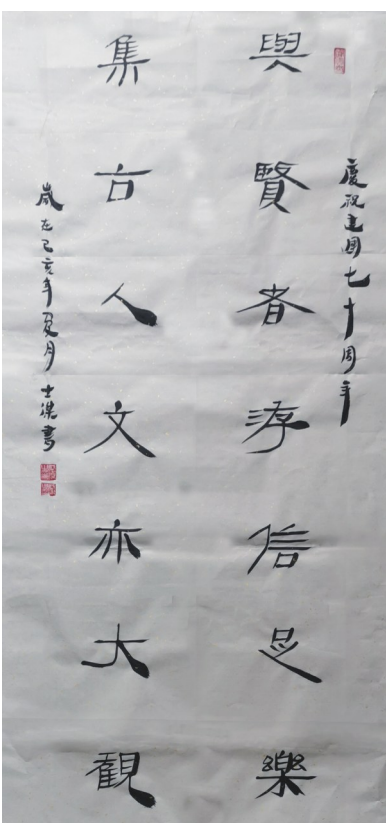 慶祝建國七十周年
與賢者游信足樂
集古人文亦大觀
歲在己亥年夏月 士書